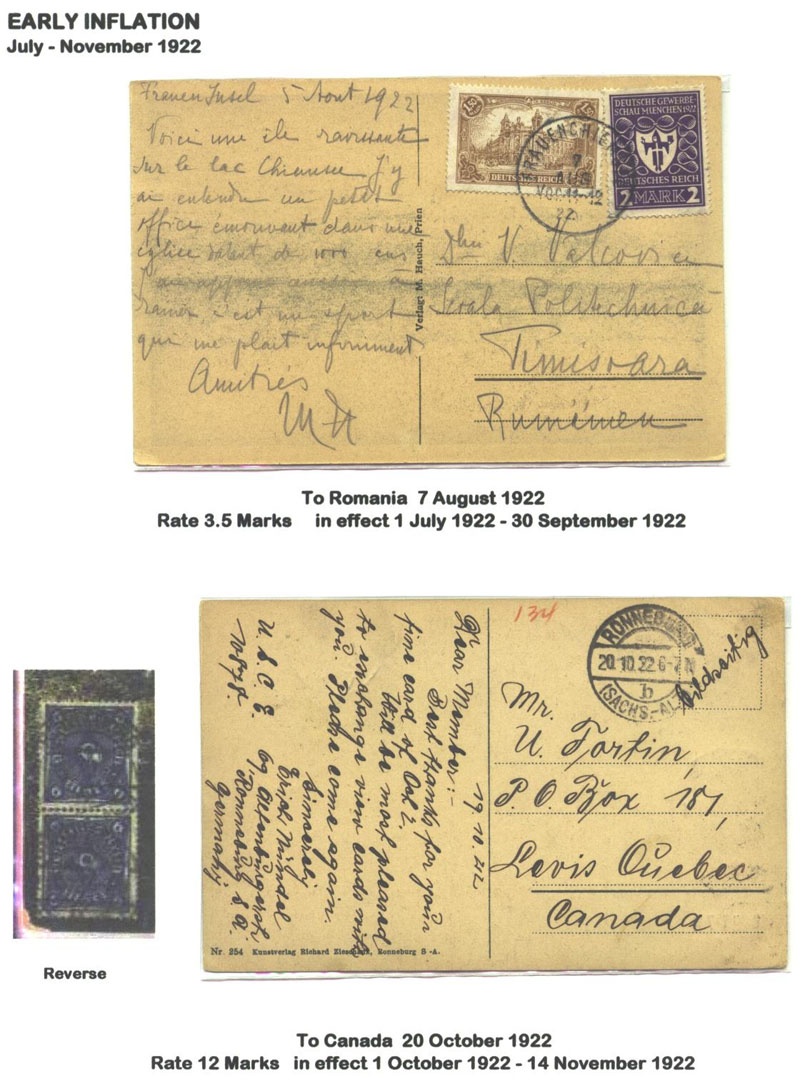 EARLY INFLATION
July - November 1922
Frauen Insel 5 Aout 1922
Voici une ile ravissante
sur le lac Chiemsee J'y
ai entendu un petit
office émouvant dans une
eglise datant de 1000 ans
ramer, c'est un sport
qui me plait infiniment
Amitiés
Verlag: M. Hauch, Prien
1,50
DEUTSCHES REICH
DEUTSCHE GEWERBE-
SCHAU MUENCHEN 1922
DEUTSCHES REICH
2 MARK 2
FRAUENCHIEMSEE
7
AUG
VOR 11-12
22
Dlui V. Valcovici
Scoala Politehnică
Timisoara
Rumänien
To Romania 7 August 1922
Rate 3.5 Marks in effect 1 July 1922 - 30 September 1922
Reverse
19.10.22
Dear Member:-
Best thanks for your
fine card of Oct 2.
Will be most pleased
to exchange view cards with
you. Please come again.
Sincerely
Erich
Ronneburg S.A.
Germany
U.S.C.E.
10878.
Nr. 254 Kunstverlag Richard Zieschank, Ronneburg S-A.
134
RONNEBURG
20.10.22.6-7N
b
(SACHS.-AL
bildseitig
Mr.
U. Fortin,
P.O. Box 187,
Levis Quebec
Canada
To Canada 20 October 1922
Rate 12 Marks in effect 1 October 1922 - 14 November 1922